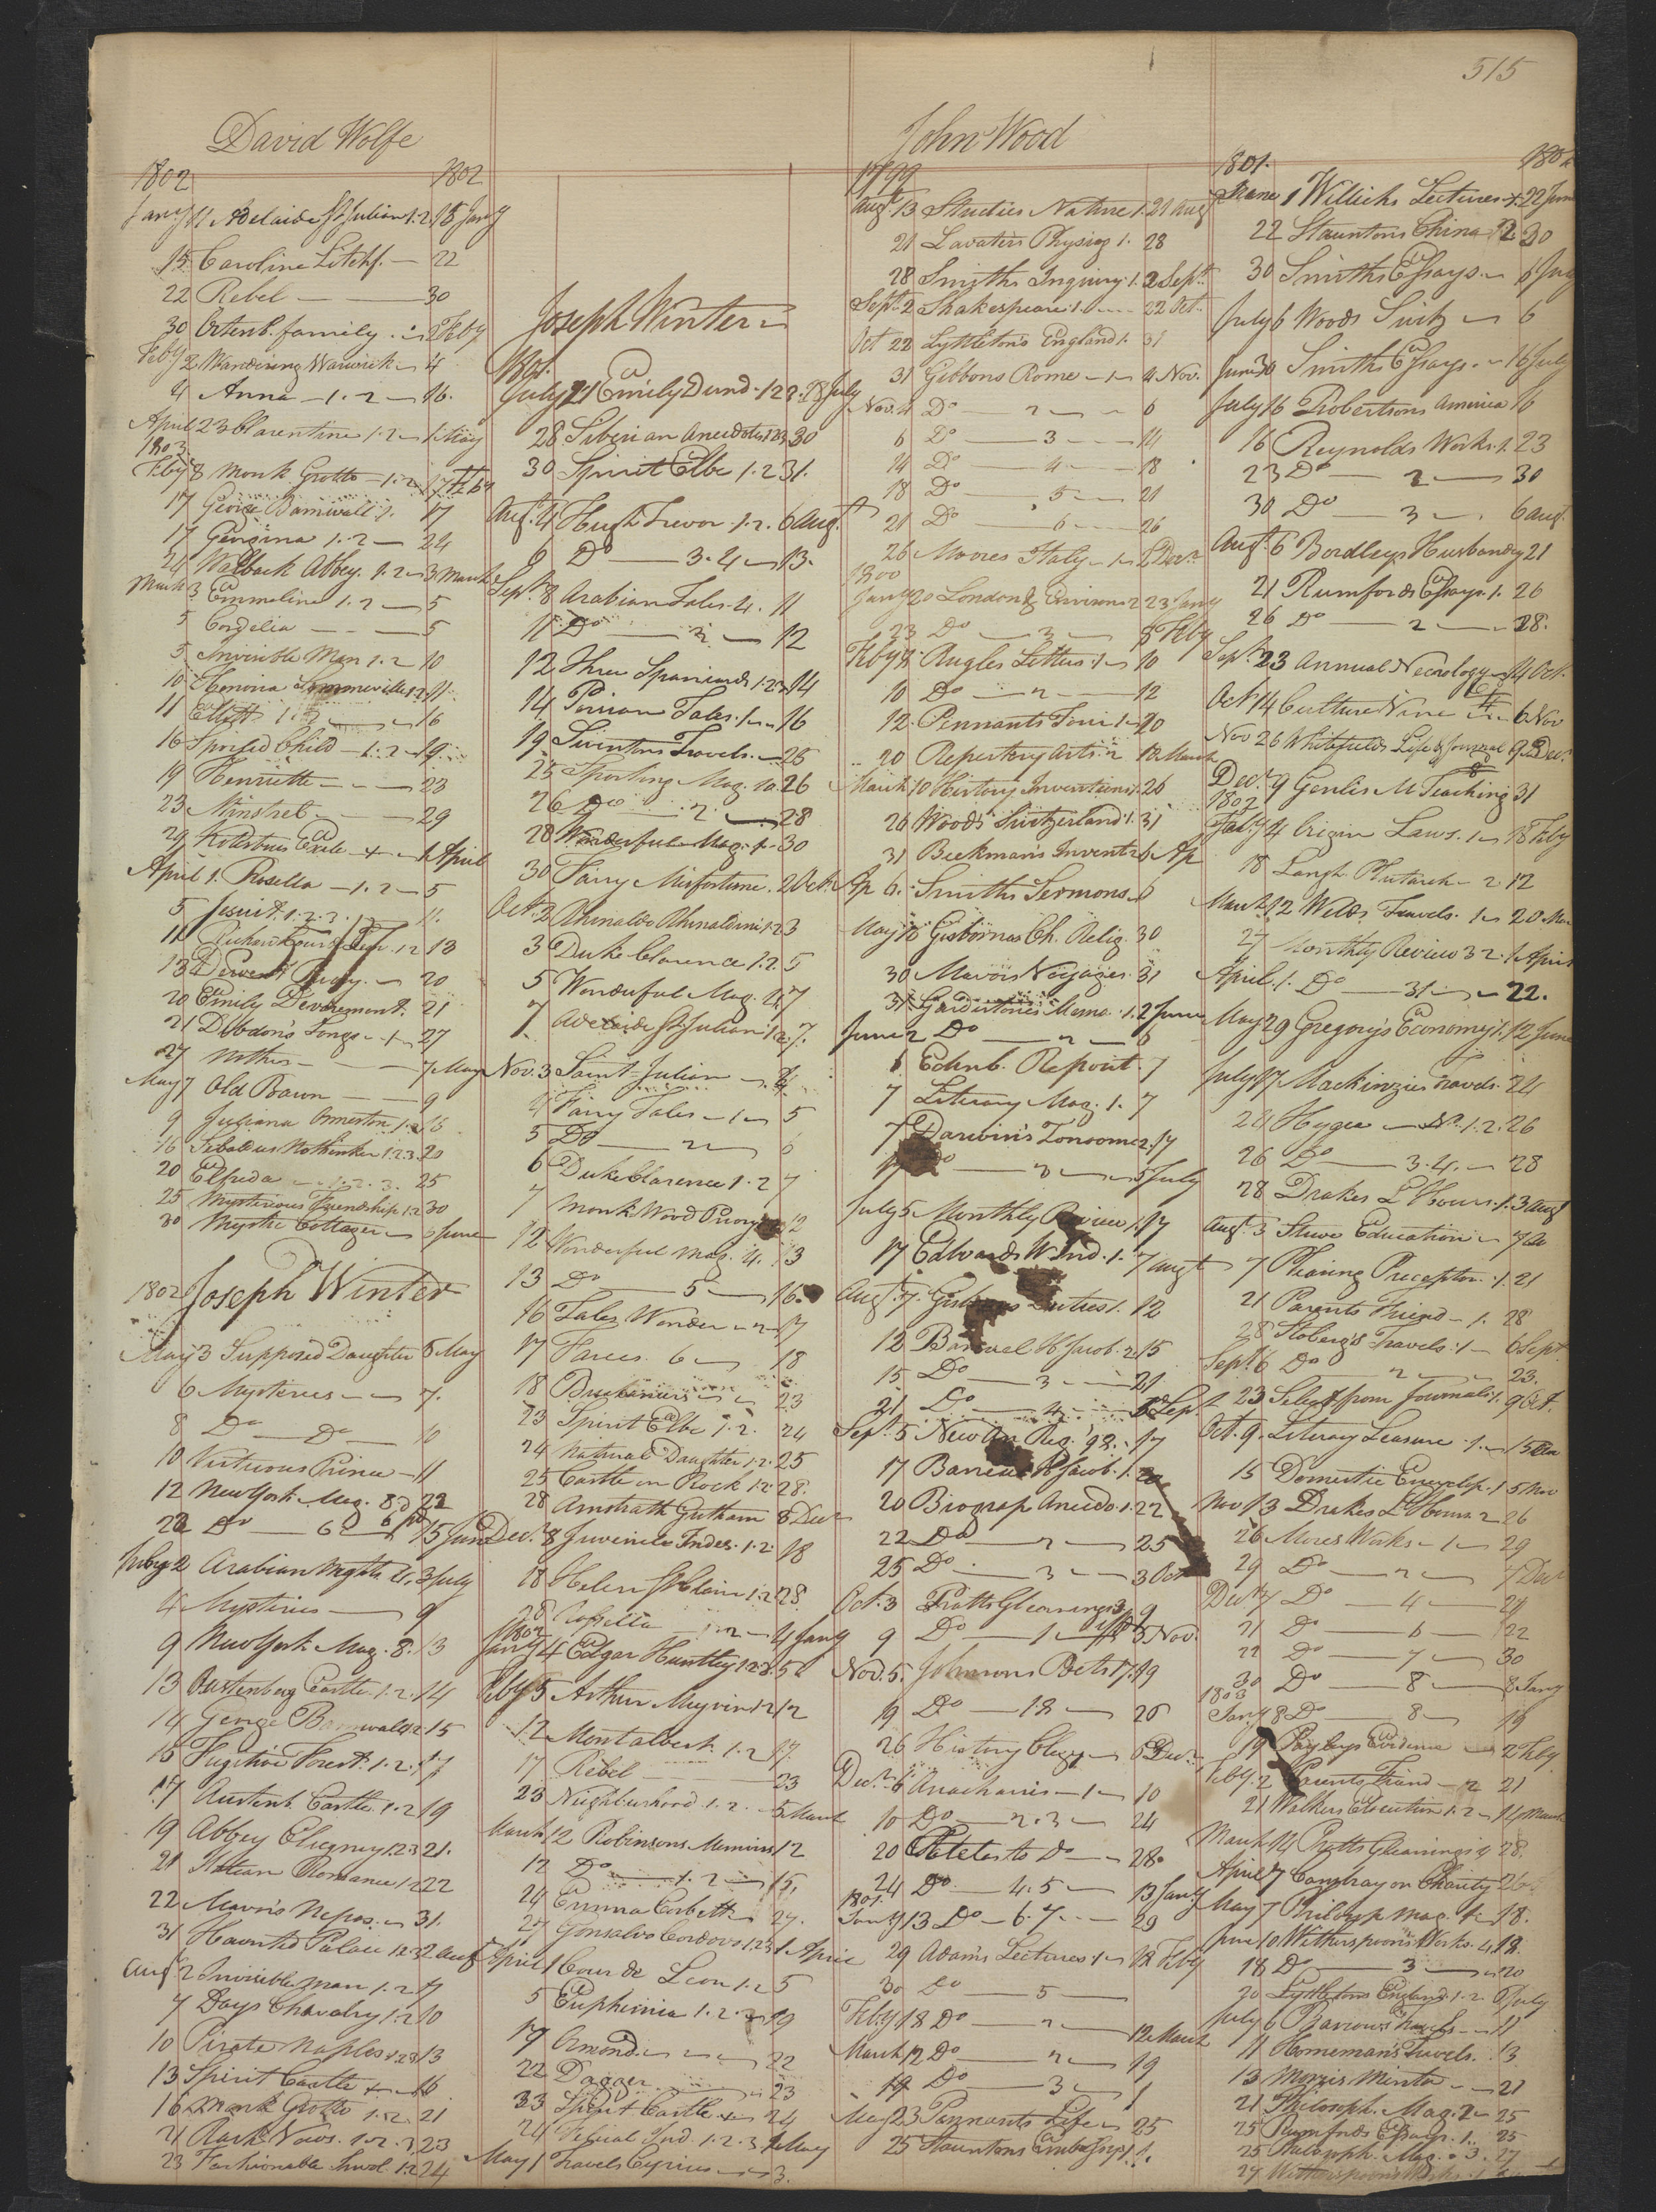 515
David Wolfe
1802 1802
Jany 11 Adelaide St Julian 1.2 15 Jany
15 Caroline Litchf. — 22
22 Rebel — 30
30 Ortenb. family — 2 Feby
Feby 2 Wandering Warwick — 4
4 Anna — 1. 2 — 16.
April 23 Clarentine 1. 2 — 1 May
1803
Feby 8 Monk Grotto — 1. 2 — 17 Feby
17 George Barnwell 1. 17
17 Georgina 1. 2 — 24
24 Walbeck Abbey. 1. 2 — 3 March
March 3 Emmeline 1. 2 — 5
5 Cordelia — 5
5 Invisible Man 1. 2 10
10 Honoria Sommerville 1.2 11
11 Elliott 1. 2 — 16
16 Spoiled Child — 1. 2 — 19
19 Henriette — 23
23 Minstrel — 29
29 Kotzebues Exile — 1 April
April 1. Rosella — 1. 2 — 5
5 Jesuit. 1. 2. 3. 11.
11 Richard Coeur de Leon. 1 2 13
13 Derwent Priory. — 20
20 Emily Deverement. 21
21 Dibdon's Songs — 1 — 27
27 Mother — 7 May
May 7 Old Baron — 9
9 Juliana Ormeston 1. 2 16
16 Sebaldus Nothinker 1 2 3. 20
20 Elfreda — 1. 2. 3. 25
25 Mysterious Friendship 1.2 30
30 Mystic Cottager — 6 June
1802 Joseph Winter
May 3 Supposed Daughter 5 May
6 Mysteries — 7.
8 Do — Do — 10
10 Virtuous Prince — 11
12 New York Mag. 8. 22
22 Do — 6 15 June
July 2 Arabian Nights 4. 3 July
4 Mysteries — 9
9 New York Mag. 8. 13
13 Rustenberg Castle. 1. 2. 14
14 George Barnwell 1 2 15
15 Fugitive Forest. 1. 2. 17
17 Austenb. Castle. 1. 2 19
19 Abbey Clugney 1 2 3 21.
21 Italian Romance 1. 2 22
22 Mavor's Nepos. — 31.
31 Haunted Palace 1 2 3 2 Augt
Augt 2 Invisible Man 1. 2 7
7 Days Chivalry 1. 2 10
10 Pirate Naples 1 2 3 13
13 Spirit Castle — 16
16 Monk Grotto 1. 2. 21
21 Rash Vows. 1. 2. 3 23
23 Fashionable Invol. 1. 2 24
Joseph Winter
1801.
July 21 Emily Dund. 1 2 3. 28 July
28 Siberian Anecdotes 1 2 3 30
30 Spirit Elbe 1. 2 31.
Aug. 4 Hugh Trevor 1. 2. 6 Augt
6 Do — 3. 4 — 13.
Sept. 8 Arabian Tales. 4. 11
11 Do — 3 — 12
12 Three Spaniards 1. 2 14
14 Persian Tales. 1 — 16
19 Swintons Travels. — 25
25 Sporting Mag. 10. 26
26 Do — 2. — 28
28 Wonderful Mag. 1 — 30
30 Fairy Misfortune. 2 Oct.
Oct. 2 Rhinaldo Rhinaldini 1 2 3
3 Duke Clarence 1. 2. 5
5 Wonderful Mag. 4. 7
7 Adelaide St Julian 1 2. 7.
Nov. 3 Saint Julian — 4
4 Fairy Tales — 1 — 5
5 Do — 2 — 6
6 Duke Clarence 1. 2 7
7 Monk Wood Priory 12
12 Wonderful Mag. 4. 13
13 Do — 5 — 16.
16 Tales Wonder — 2 — 17
17 Farces. 6 — 18
18 Buckaniers — 23
23 Spirit Elbe 1. 2. 24
24 Natural Daughter 1. 2. 25
25 Castle on Rock 1. 2. 28.
28 Amstrath Gutham 8 Decr
Decr. 8 Juvenile Indes. 1. 2. 18
18 Helen St Clair 1. 2 28
28 Rossella — 1. 2 — 4 Jany
1802
Jany 4 Edgar Huntley 1 2 3. 5
Feby 5 Arthur Mervin 1 2 12
12 Montalbert. 1. 2 17.
17 Rebel — 23
23 Neighbourhood 1. 2. — 5 March
March 12 Robinsons Memoirs 12
12 Do — 1. 2 — 15,
24 Emma Corbett — 27.
27 Gonsalvo Cordova 1 2 3 1 April
April 1 Cour de Leon 1. 2 5
5 Euphemia 1. 2. 3 19
19 Ormond. — 22
22 Dagger — 23
23 Spirit Castle — 24
24 Filial Ind. 1. 2. 3 1 May
May 1 Travels Cyrus — 3.
John Wood
1799
Augt 13 Studies Nature 1. 21 Augt
21 Lavaters Physiog 1. 28
28 Smiths Inquiry. 1. 2 Sept.
Sept. 2 Shakespeare. 1. — 22 Oct.
Oct 22 Lyttletons England 1. 31
31 Gibbons Rome — 1 — 4 Nov.
Nov. 4 Do — 2 — 6
6 Do — 3 — 14
14 Do — 4 — 18
18 Do — 5 — 21
21 Do — 6 — 26
26 Moores Italy — 1 — 2 Decr
1800
Jany 20 London & Environs 2 23 Jany
23 Do — 3 — 8 Feby
Feby 8 Ruglers Letters. 1 — 10
10 Do — 2 — 12
12. Pennants Tour 1 — 20
20 Repertory Arts. 2 10 March
March 10 History Inventions 1. 26
26 Woods Switzerland 1. 31
31 Beckman's Invent 2 6 Ap
Ap 6. Smiths Sermons — 6
May 16 Gisbornes Ch. Relig. 30
30 Mavors Voyages. 31
31 Gardenstones Memo. 1. 2 June
June 2 Do — 2 — 6
6 Edinb. Reposit. 7
7 Literary Mag. 1. 7
7 Darwin's Zonoomia 2. 17
17 Do — 3 — 5 July
July 5 Monthly Review 1. 17
17 Edwards W. Ind. 1. 7 Augt
Augt. 7. Gisbornes Duties 1. 12
12 Barruel H Jacob. 2 15
15 Do — 3 — 21
21 Do — 4 — 5 Sept
Sept. 5 New An Reg. 98. 17
17 Barruel H Jacob. 1. 20
20 Biograp Anecdo. 1. 22
22 Do — 2 — 25
25 Do — 3 — 3 Oct
Oct. 3 Pratts Gleanings 3 9
9 Do — 1 — 5 Nov.
Nov. 5. Johnsons Poets 17. 19
19 Do — 18 — 26
26 History Clergy — 6 Decr
Decr. 6 Anacharsis — 1 — 10
10 Do — 2. 3 — 24
20 Plates to Do — 28.
24 Do — 4. 5 — 13 Jany
1801.
Jany 13 Do — 6. 7 — 29
29 Adams Lectures. 1 — 18 Feby
30 Do — 5 —
Feby 18 Do — 2 — 12 March
March 12 Do — 2 — 19
19 Do — 3 — 1
May 23 Pannants Life — 25
25 Stauntons Embassy 1. 1.
1801. 1801
June 1 Willichs Lectures — 22 June
22 Stauntons China 2 30
30 Smiths Essays. — 6 July
July 6 Woods Switz — 6
June 30 Smiths Essays. — 16 July
July 16 Robertsons America 16
16 Reynolds Works. 1. 23
23 Do — 2 — 30
30 Do — 3 — 6 Augt.
Augt. 6 Bordleys Husbandry 21
21 Rumfords Essays 1. 26
26 Do — 2 — 28.
Sept. 23 Annual Necrology — 14 Oct.
Oct 14 Culture Vine — 6 Nov
Nov 26 Whitefields Life & Journal 9 Decr.
Decr. 9 Genlis M Teaching 31
1802
Feby 4 Origin Laws. 1 — 18 Feby
18 Langh. Plutarch — 2 12
March 12 Welds Travels. 1 — 20 Mar
27 Monthly Review 32. 1 April
April. 1. Do — 31 — 22.
May 29 Gregory's Economy 1. 12 June
July 17 Mackinzies Travels. 24
24 Hygea — No. 1. 2. 26
26 Do — 3. 4. — 28
28 Drakes L Hours. 1. 3 Augt
Augt. 3 Stuve Education — 7 Do
7 Pleasing Preceptor. 1. 21
21 Parents Friend — 1. 28
28 Stobergs Travels. 1 — 6 Sept.
Sept. 6 Do — 2 — 23.
23 Select from Journals 1. 9 Oct.
Oct. 9. Literary Leasure. 1. — 15 Do
15 Domestic Encyclop. 1 5 Nov
Nov 13 Drakes L Hours 2 26
26 Mores Works — 1 — 29
29 Do — 2 — 7 Decr
Decr 7 Do — 4 — 21
21 Do — 6 — 22
22 Do — 7 — 30
30 Do — 8 — 8 Jany
1803
Jany 8 Do — 8 — 19
19 Payleys Evidence — 2 Feby
Feby. 2 Parents Friend — 2 21
21 Walkers Elocution 1. 2 — 14 March
March 14 Pratts Gleanings 4 28
April 7 Cambray on Charity 26
May 7 Philosp Mag. 1. 18.
June 10 Witherspoons Works. 4 18.
18 Do — 3 — 20
20 Lyttletons England. 1. 2 6 July
July 6 Barrows Travels — 11
11 Hornemans Travels. 13
13 Morris Mentor — 21
21 Philosoph. Mag. 2 — 25
25 Rumfords Essays. 1. 25
25 Philosoph. Mag. 3. 27
27 Witherspoons Works. 1